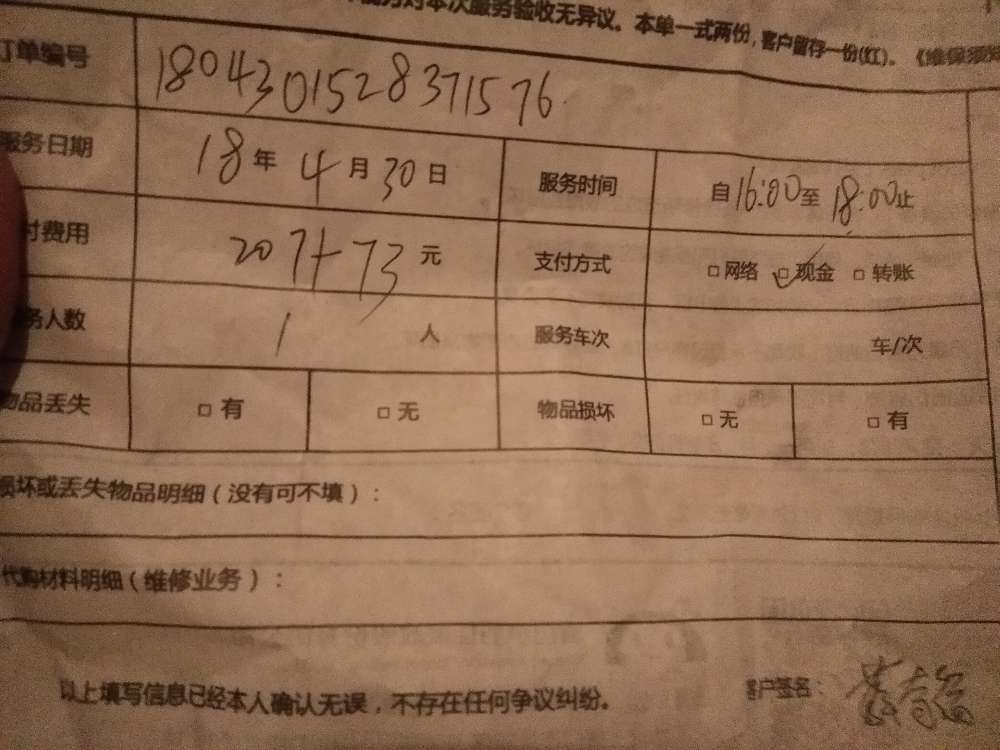 对本次服务验收无异议。本单一式两份，客户留存一份(红)。《维保须
订单编号 1804301528371576
服务日期 18年4月30日 服务时间 自16:00至18:00止
付费用 207+73元 支付方式 □网络 ☑现金 □转账
务人数 1人 服务车次 车/次
物品丢失 □有 □无 物品损坏 □无 □有
损坏或丢失物品明细（没有可不填）：
代购材料明细（维修业务）：
以上填写信息已经本人确认无误，不存在任何争议纠纷。 客户签名：